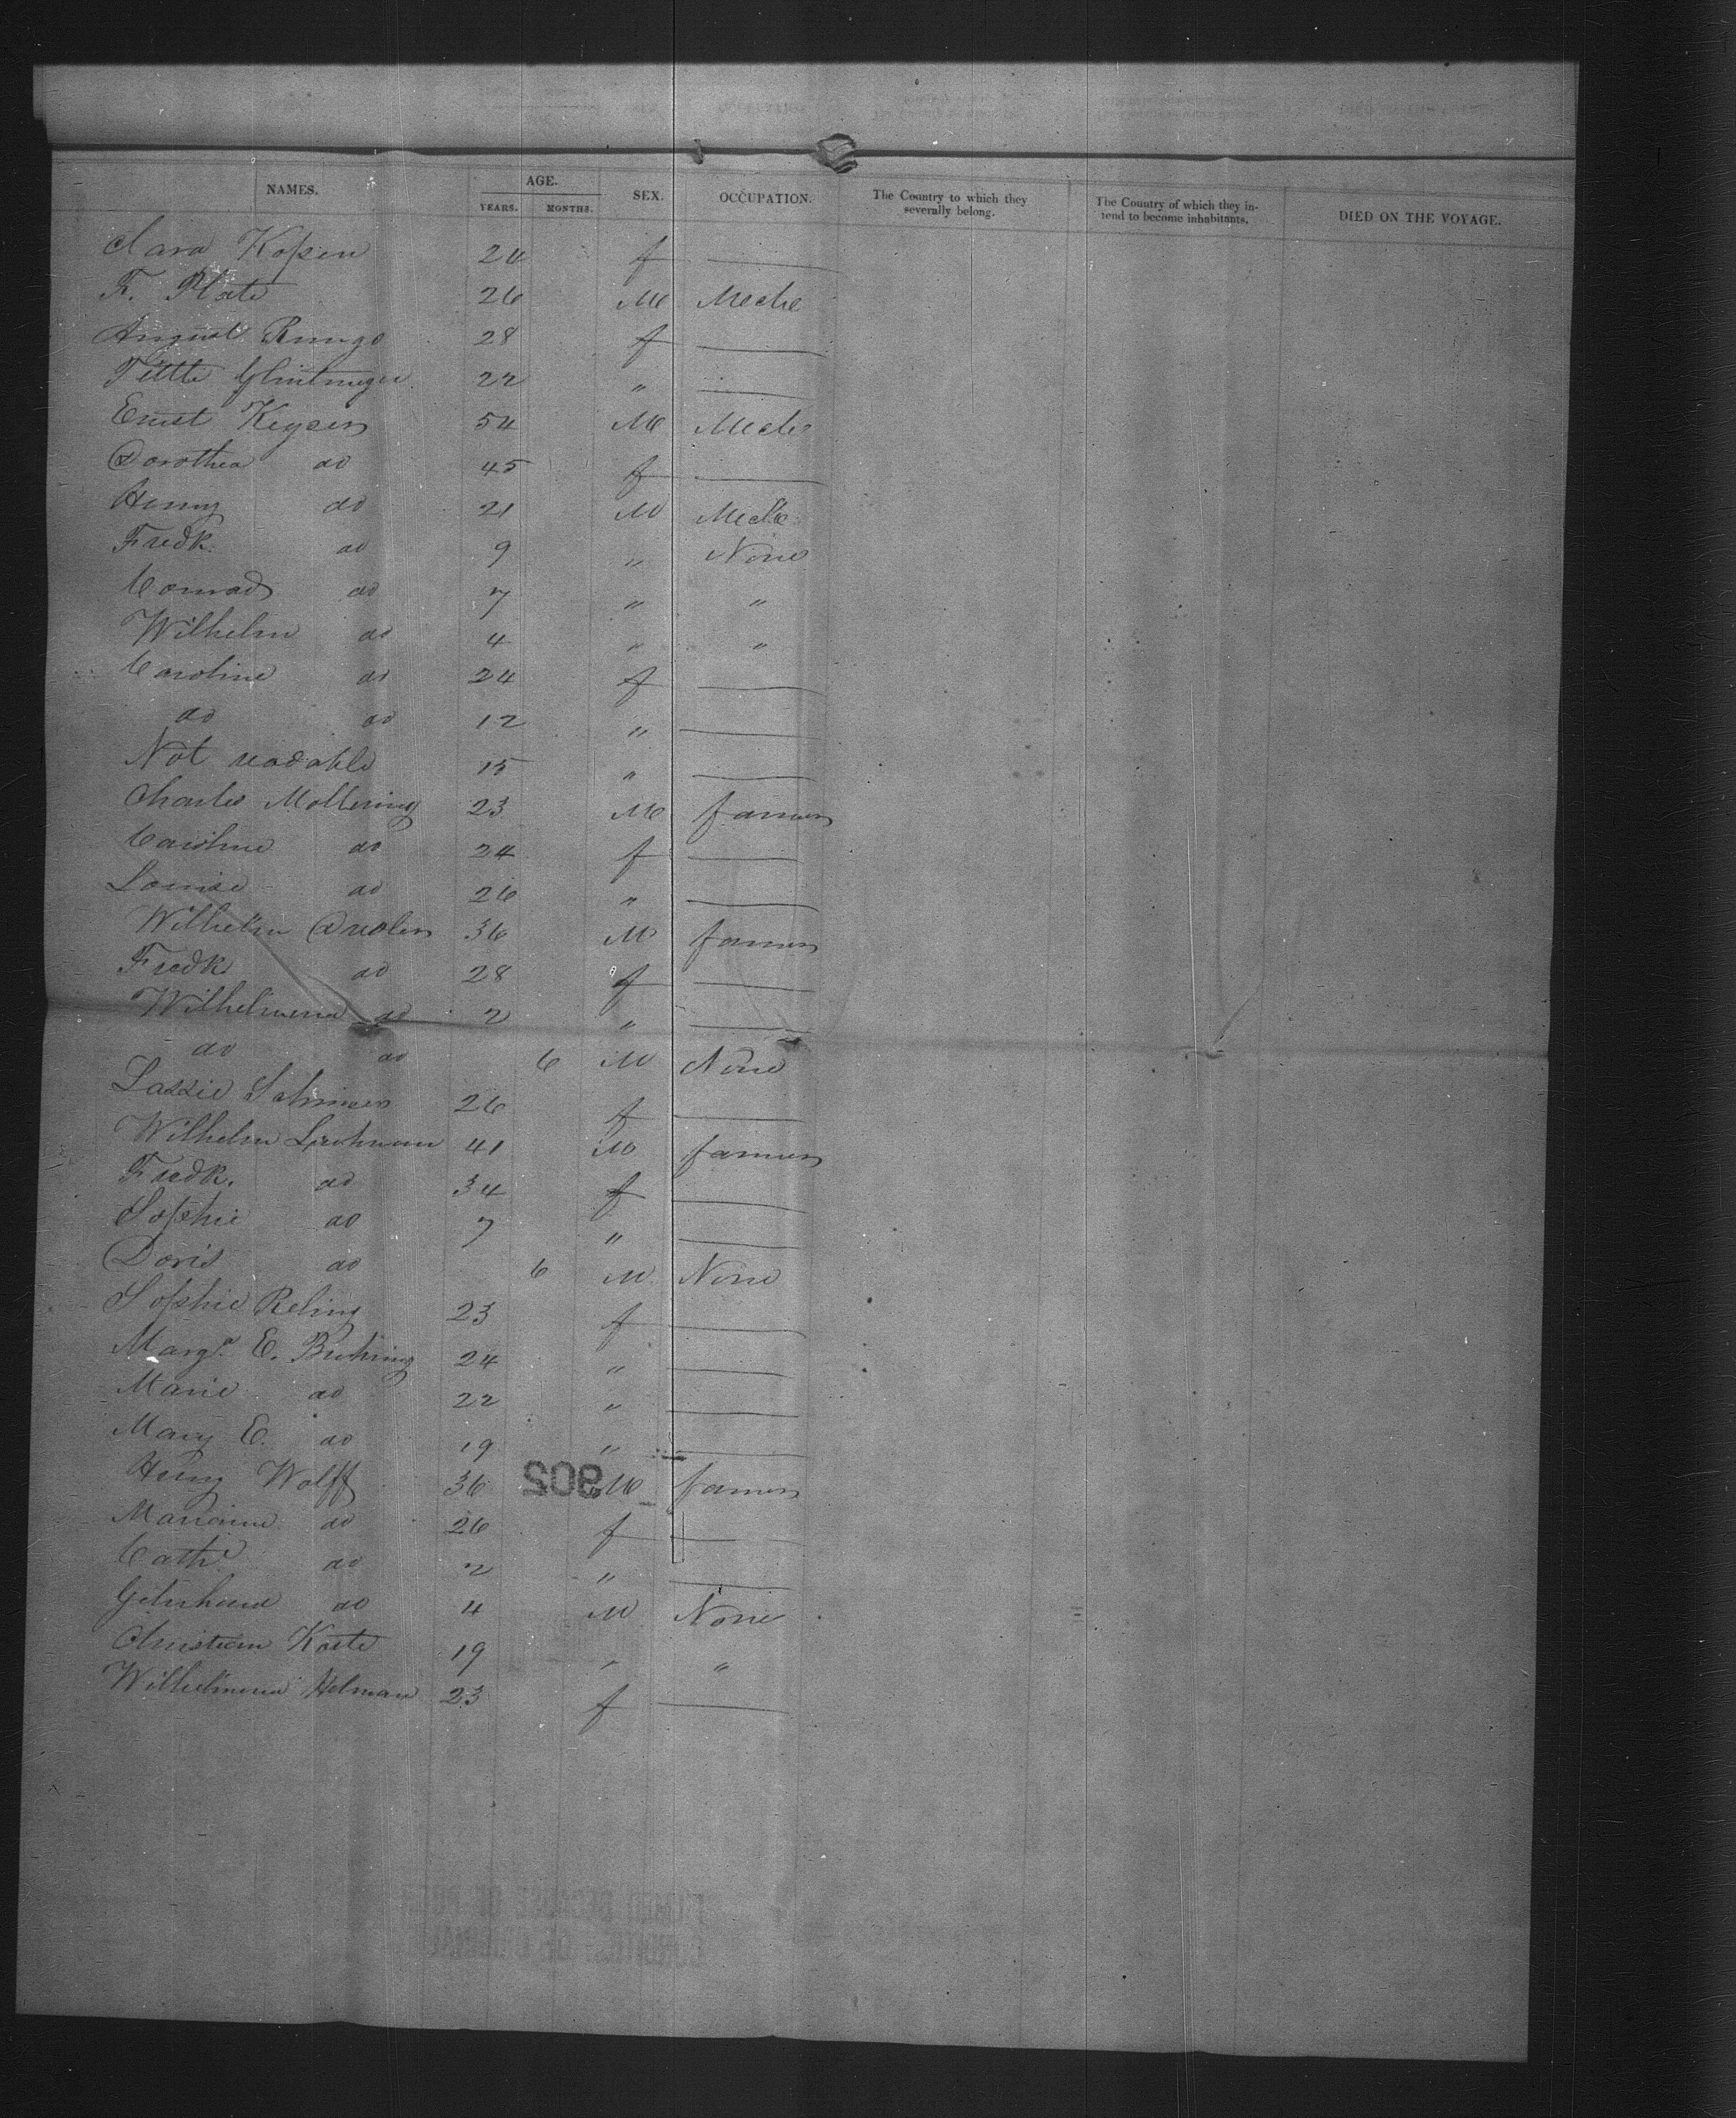 NAMES. AGE. YEARS. MONTHS. SEX. OCCUPATION. The Country to which they severally belong. The Country of which they intend to become inhabitants. DIED ON THE VOYAGE.
Clara 24 f
F. Plate 26 M Mechc
August Runge 28 f
22 "
Ernst Keyser 54 M Mechc
Dorothea do 45 f
Henry do 21 M Mechc
Fredk. do 9 " None
Conrad do 7 " "
Wilhelm do 4 " "
Caroline do 24 f
do do 12 "
Not readable 15 "
Charles Mollering 23 M farmer
Caroline do 24 f
Louise do 26 "
Wilhelm 36 M farmer
Fredk do 28 f
Wilhelmena do 2 "
do do 6 M None
26 f
Wilhelm 41 M farmer
Fredk. do 34 f
Sophie do 7 "
Doris do 6 M None
Sophie Reling 23 f
Margt. E. 24 "
Marie do 22 "
Mary E. do 19 "
Henry Wolff 36 M farmer
Marianne do 26 f
Cathe do 2 "
do 4 M None
Christian Koste 19 " "
Wilhelmena Helman 23 f
902